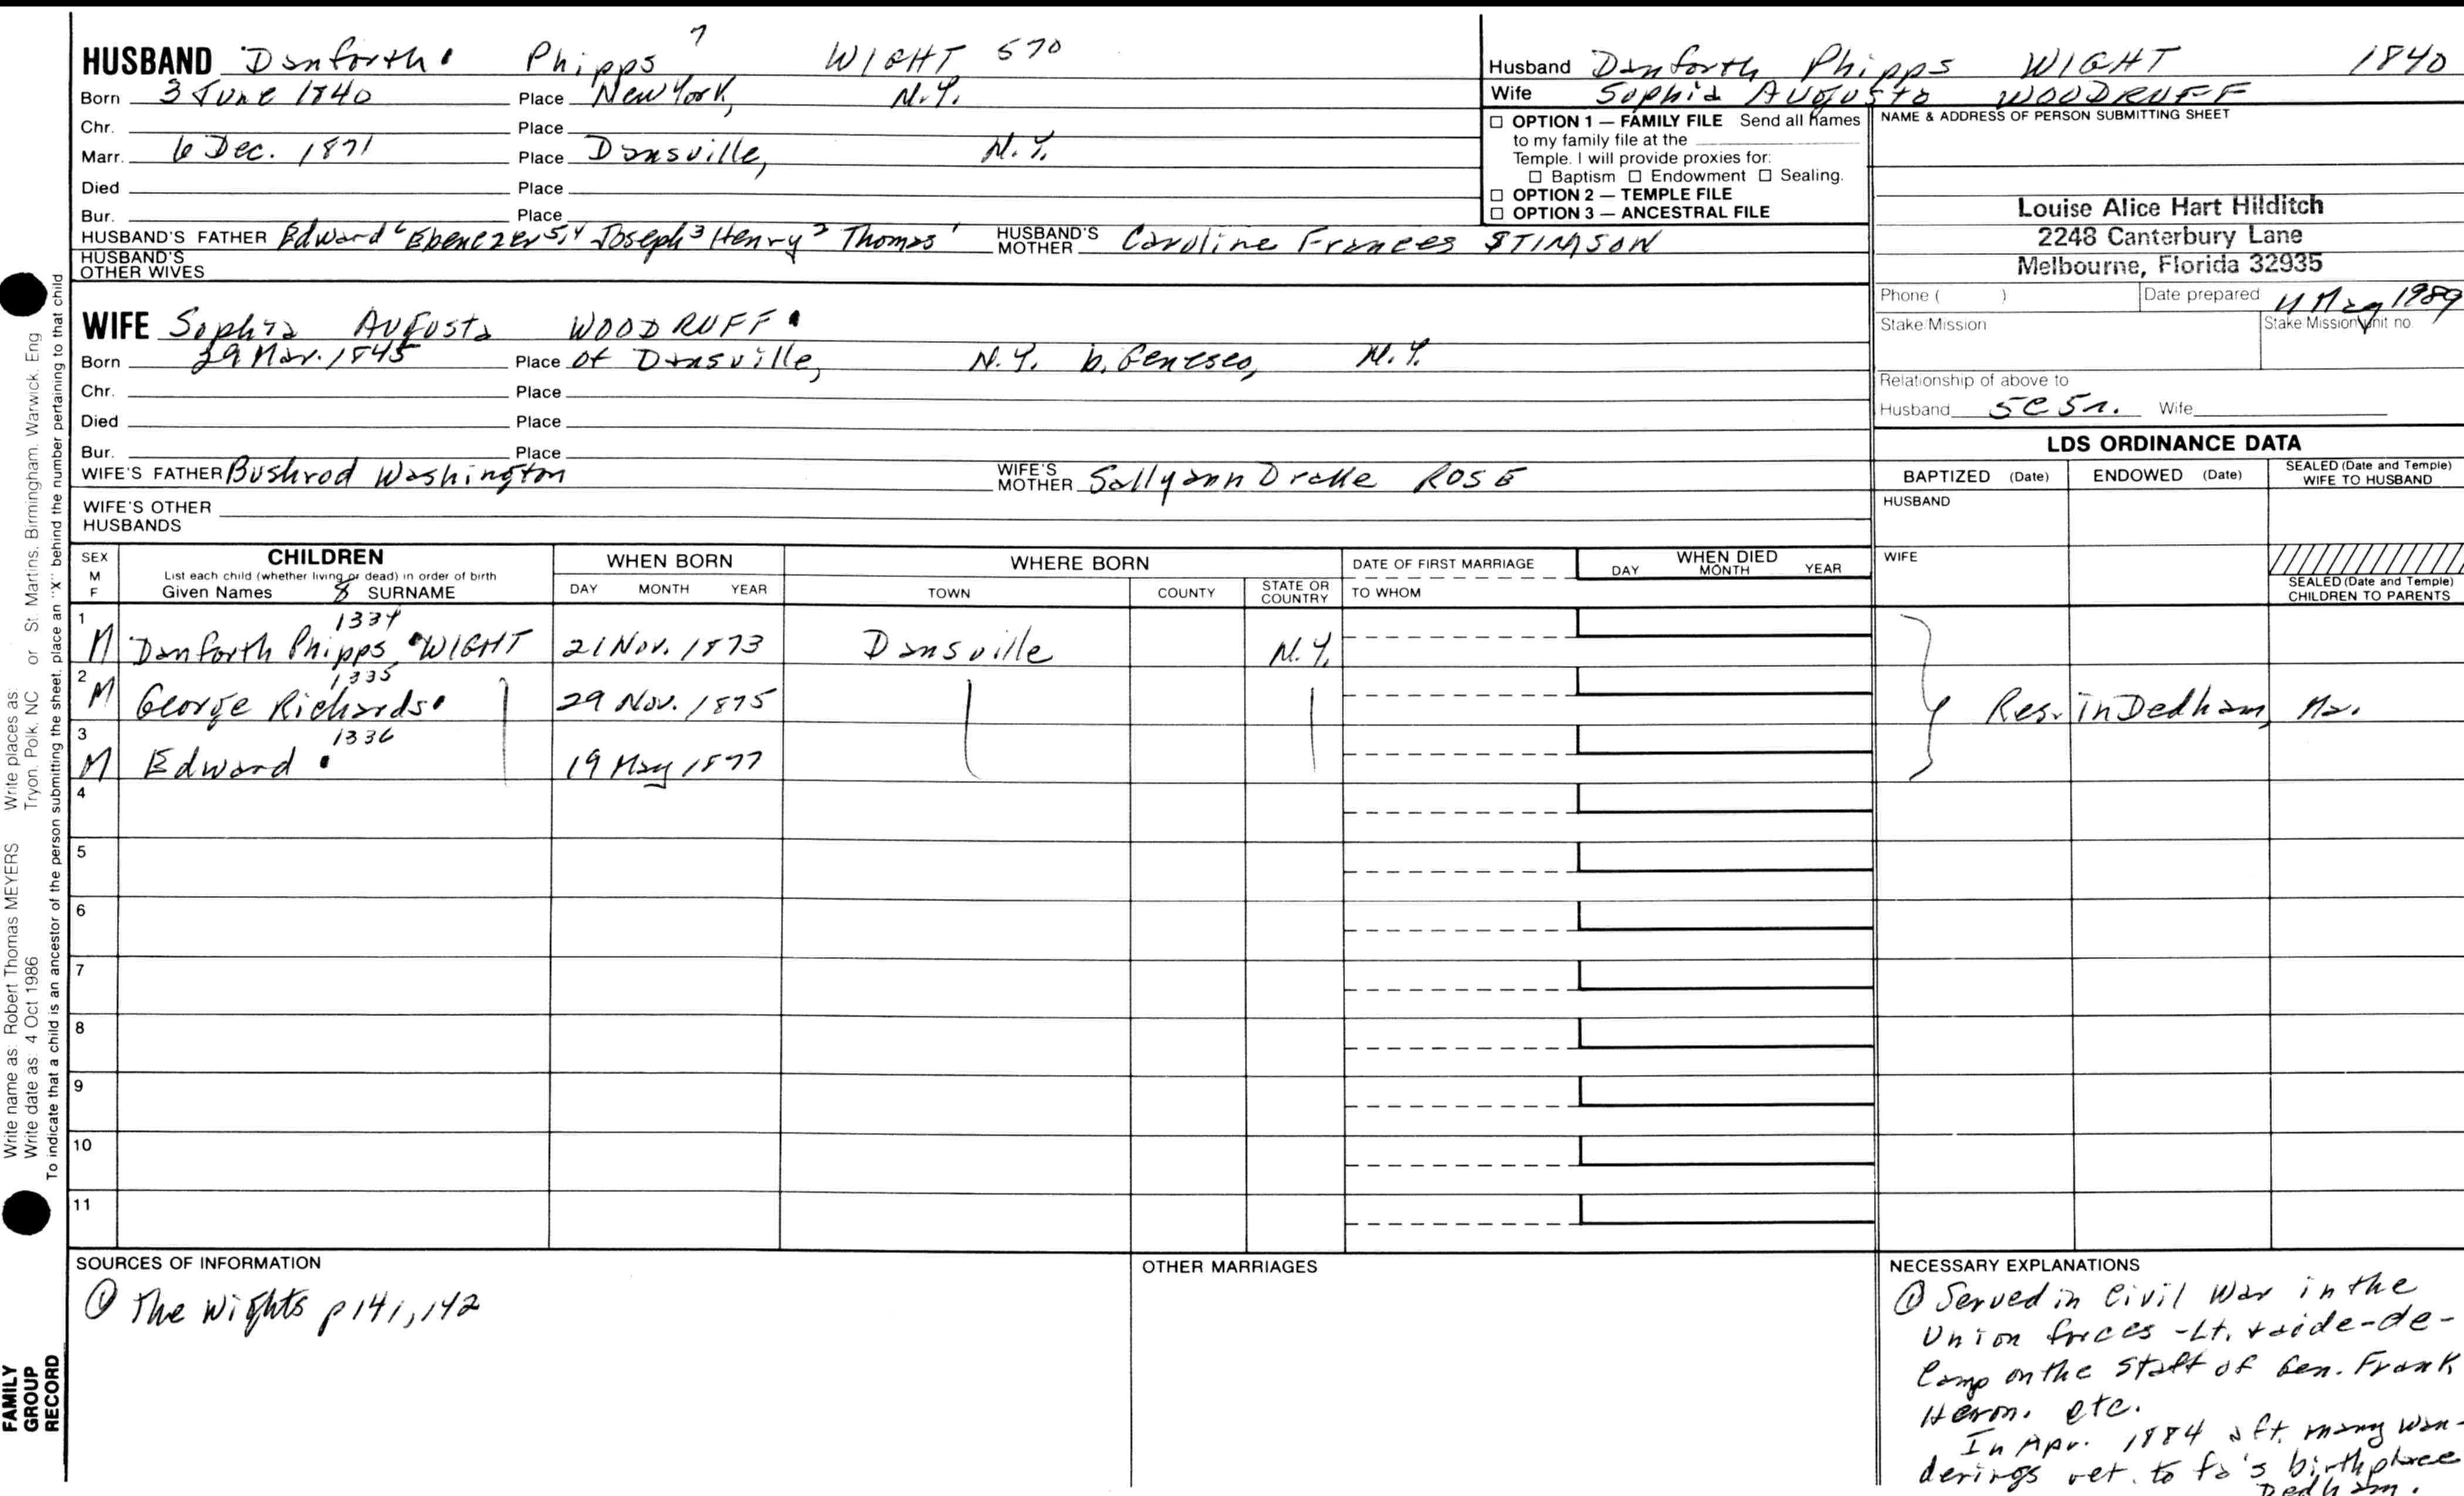 HUSBAND Danforth Phipps 7 WIGHT 570
Born 3 June 1840 Place New York, N.Y.
Chr. Place
Marr. 6 Dec. 1871 Place Dansville, N.Y.
Died Place
Bur. Place
HUSBAND'S FATHER Edward 6 Ebenezer 5,4 Joseph 3 Henry 2 Thomas 1 HUSBAND'S MOTHER Caroline Frances STIMSON
HUSBAND'S OTHER WIVES
WIFE Sophia Augusta WOODRUFF
Born 29 Mar. 1845 Place of Dansville, N.Y. b. Geneseo, N.Y.
Chr. Place
Died Place
Bur. Place
WIFE'S FATHER Bushrod Washington WIFE'S MOTHER Sallyann Drake ROSE
WIFE'S OTHER HUSBANDS
Husband Danforth Phipps WIGHT 1840
Wife Sophia Augusta WOODRUFF
☐ OPTION 1 — FAMILY FILE Send all names
to my family file at the
Temple. I will provide proxies for:
☐ Baptism ☐ Endowment ☐ Sealing.
☐ OPTION 2 — TEMPLE FILE
☐ OPTION 3 — ANCESTRAL FILE
NAME & ADDRESS OF PERSON SUBMITTING SHEET
Louise Alice Hart Hilditch
2248 Canterbury Lane
Melbourne, Florida 32935
Phone ( ) Date prepared 1989
Stake/Mission Stake/Mission Unit no
Relationship of above to
Husband 5C5r. Wife
LDS ORDINANCE DATA
BAPTIZED (Date) ENDOWED (Date) SEALED (Date and Temple) WIFE TO HUSBAND
HUSBAND
WIFE
SEALED (Date and Temple) CHILDREN TO PARENTS
SEX M F CHILDREN WHEN BORN WHERE BORN DATE OF FIRST MARRIAGE WHEN DIED
List each child (whether living or dead) in order of birth
Given Names 8 SURNAME DAY MONTH YEAR TOWN COUNTY STATE OR COUNTRY TO WHOM DAY MONTH YEAR
1 M Danforth Phipps WIGHT 1334 21 Nov. 1873 Dansville N.Y.
2 M George Richards 1335 29 Nov. 1875 Res. in Dedham, Ma.
3 M Edward 1336 19 May 1877
4
5
6
7
8
9
10
11
SOURCES OF INFORMATION
① The Wights p 141, 142
OTHER MARRIAGES
NECESSARY EXPLANATIONS
① Served in Civil War in the
Union forces - Lt. & aide-de-
Camp on the staff of Gen. Frank
Heron. etc.
In Apr. 1884 aft. many wan-
derings ret. to fa's birthplace
Dedham.
Write name as: Robert Thomas MEYERS Write places as
Write date as: 4 Oct 1986 Tryon, Polk, NC or St. Martins, Birmingham, Warwick, Eng
To indicate that a child is an ancestor of the person submitting the sheet, place an "X" behind the number pertaining to that child
FAMILY
GROUP
RECORD